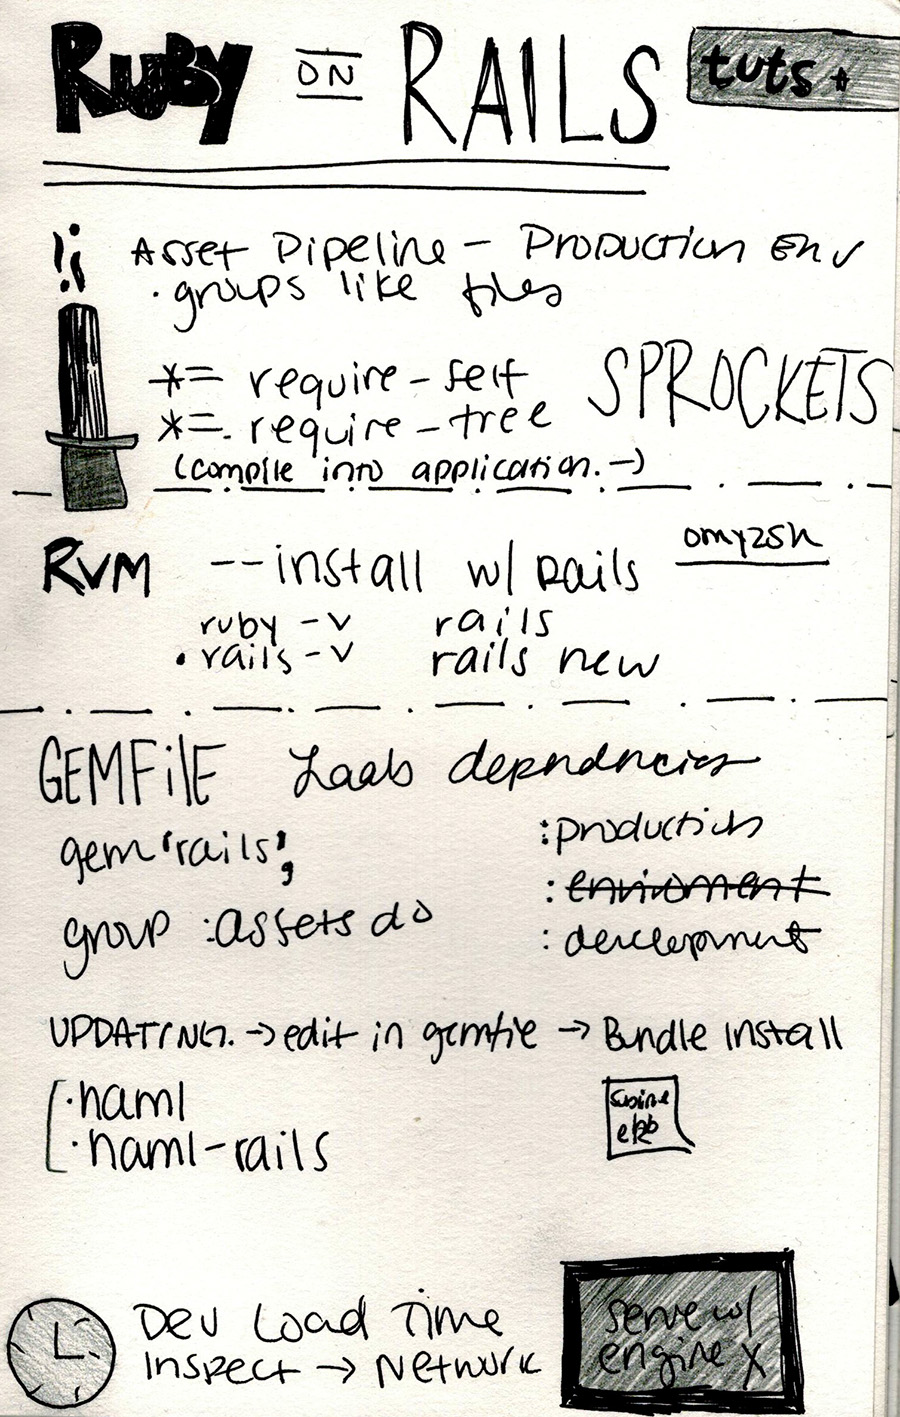 RUBY ON RAILS tuts+
!¡ Asset Pipeline - Production Env
· groups like files
*= require-self SPROCKETS
*=. require-tree
(compile into application. →)
RVM --install w/ Rails omyzsh
ruby -v rails
· rails -v rails new
GEMFILE Loads dependencies
gem 'rails', :production
:enviroment
group :assets do :development
UPDATING. → edit in gemfile → Bundle Install
· haml
· haml-rails
Dev Load Time
Inspect → Network
serve w/
engine X